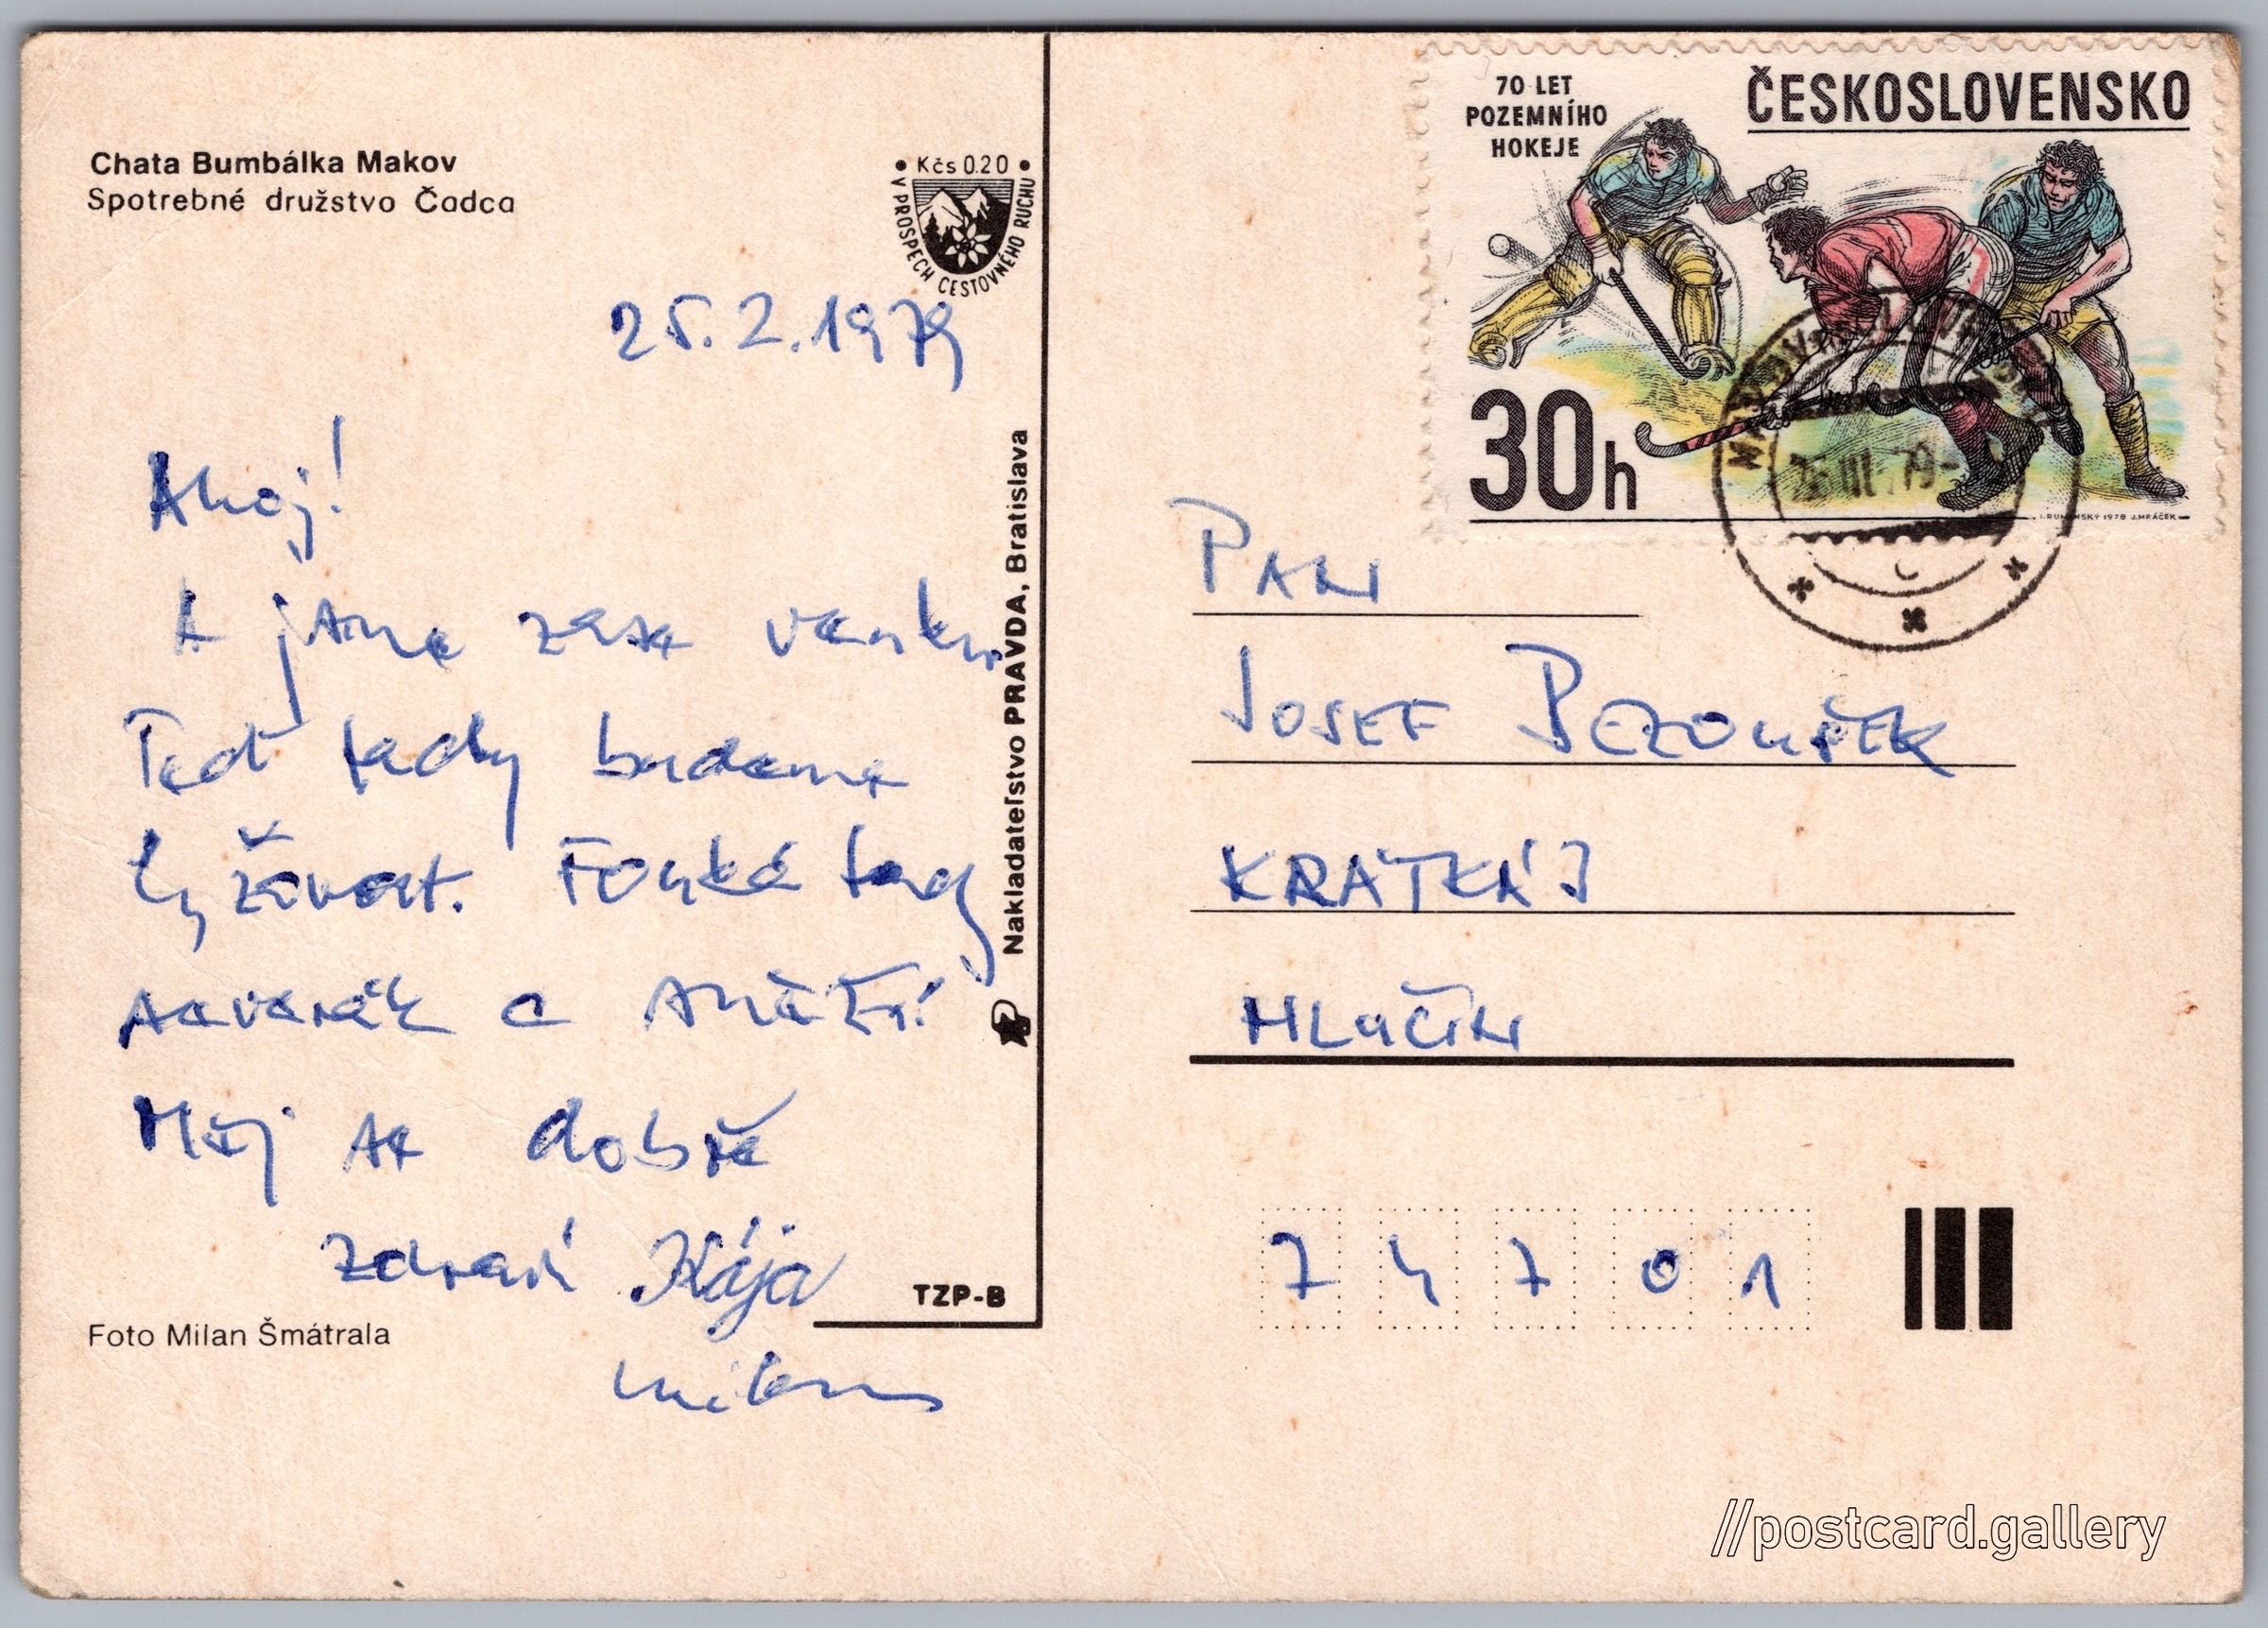 Chata Bumbálka Makov
Spotrebné družstvo Čadca
• Kčs 0.20 •
V PROSPECH CESTOVNÉHO RUCHU
25.2.1979
Ahoj!
A jsme zase venku.
Teď tady budeme
lyžovat. Fouká tady
severák a sněží!
Měj se dobře
zdraví Kája
Milan
Foto Milan Šmátrala
TZP-B
Nakladateľstvo PRAVDA, Bratislava
70 LET
POZEMNÍHO
HOKEJE
ČESKOSLOVENSKO
30h
1978 J. MRÁČEK
III. 79
PAN
JOSEF
KRÁTKÁ
HLUČÍN
747 01
//postcard.gallery